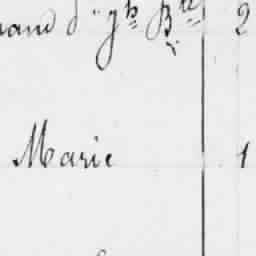 d'' Jh Bte 2
Marie 1